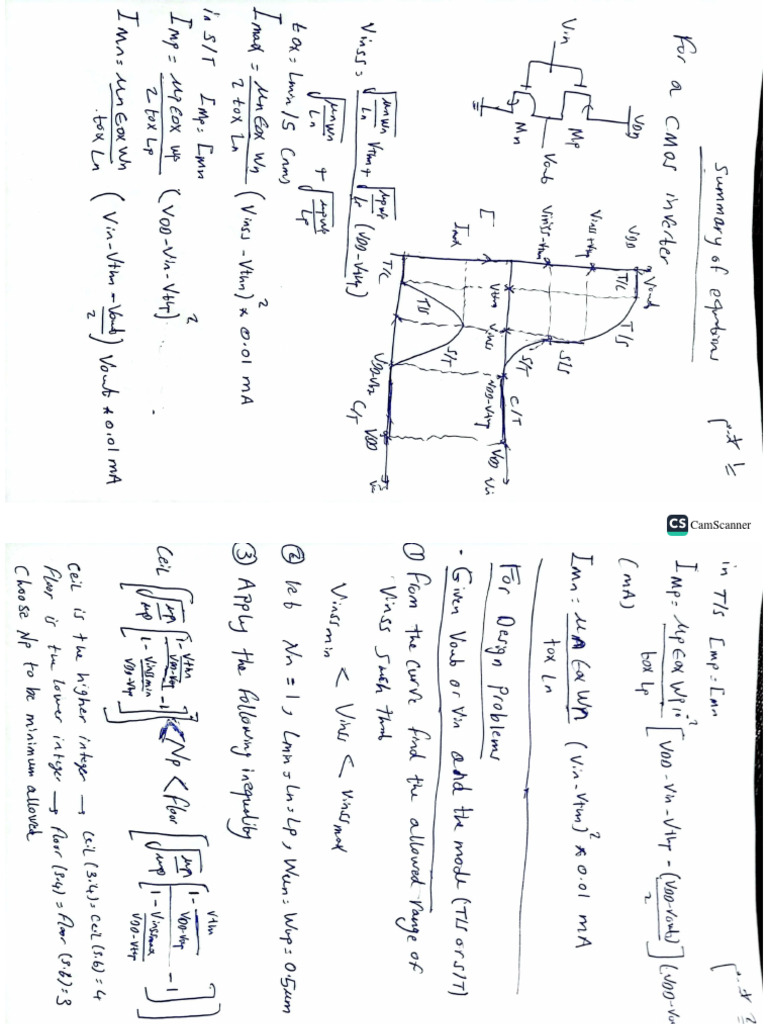 Summary of equations
For a CMOS inverter
VDD
Vin
Mp
Vout
Mn
Vout
VDD
T/C
T/S
Vinss+Vtp
S/S
Vinss-Vtn
S/T
C/T
Vtn
Vinss
VDD-Vtp
VDD
Vi
I
Imax
T/C
T/S
S/T
C/T
VDD
Vinss = √(μnWn/Ln) Vthn + √(μpWp/Lp) (VDD-Vthp)
√(μnWn/Ln) + √(μpWp/Lp)
tox = Lmin/5 (nm)
Imax = μn Eox Wn / 2 tox Ln (Vinss - Vthn)² * 0.01 mA
in S/T IMp = IMn
IMp = μp Eox Wp / 2 tox Lp (VDD - Vin - Vthp)²
IMn = μn Eox Wn / tox Ln (Vin - Vthn - Vout/2) Vout * 0.01 mA
CS CamScanner
in T/S IMp = IMn
IMp = μp Eox Wp / tox Lp [VDD - Vin - Vthp - (VDD-Vout)/2] (VDD-Vou
(mA)
IMn = μn Eox Wn / tox Ln (Vin - Vthn)² * 0.01 mA
For Design Problems
- Given Vout or Vin and the mode (T/S or S/T)
① From the curve find the allowed range of
Vinss such that
Vinss min < Vinss < Vinss max
② let Nn = 1, Lmn = Ln = Lp, Wun = Wup = 0.5μm
③ Apply the following inequality
Ceil [√(μn/μp) [1 - Vthn/VDD-Vthp / 1 - Vinssmin/VDD-Vthp - 1]] < Np < floor [√(μn/μp) [1 - Vthn/VDD-Vthp / 1 - Vinssmax/VDD-Vthp - 1]]
Ceil is the higher integer → Ceil(3.4) = Ceil(3.6) = 4
floor is the lower integer → floor(3.4) = floor(3.6) = 3
Choose Np to be minimum allowed